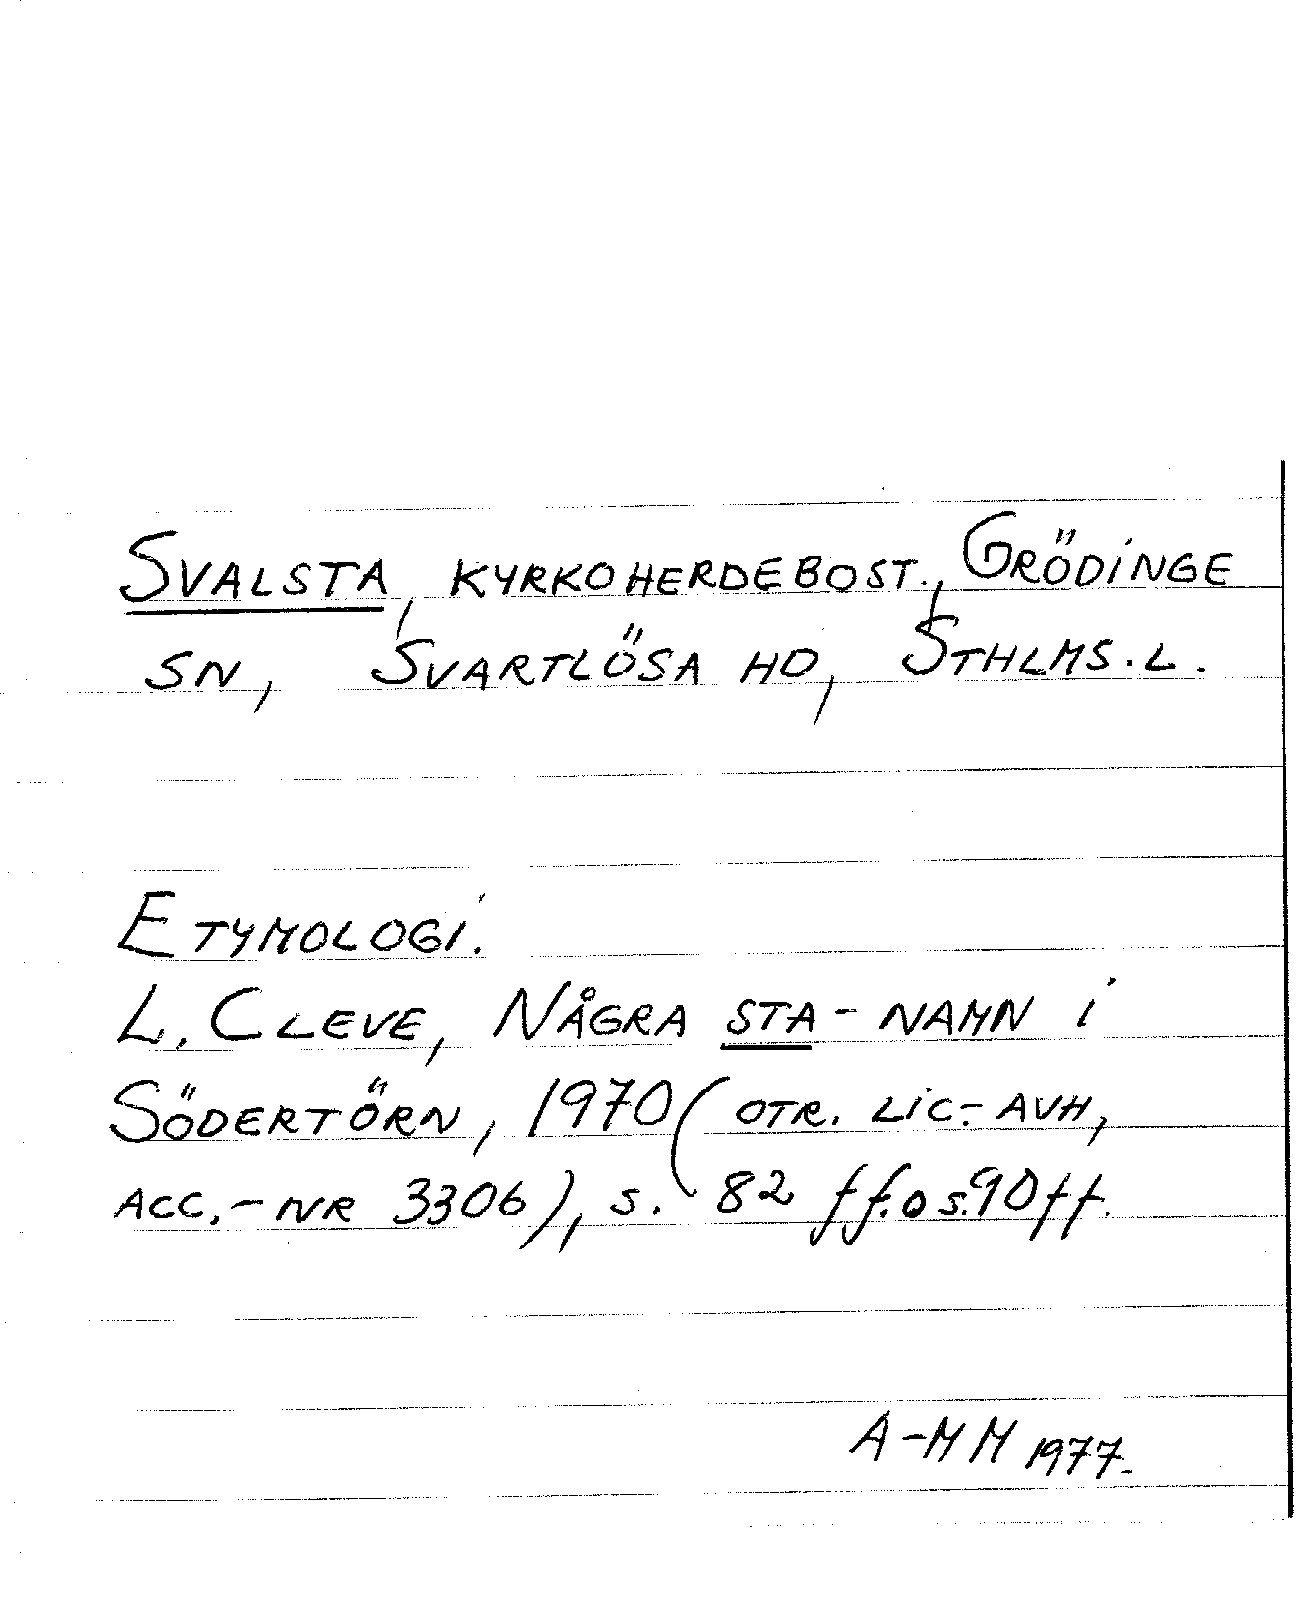 SVALSTA, KYRKOHERDEBOST., GRÖDINGE
SN, SVARTLÖSA HD, STHLMS.L.
ETYMOLOGI.
L. CLEVE, NÅGRA STA-NAMN I
SÖDERTÖRN, 1970 (OTR. LIC.-AVH,
ACC.-NR 3306), S. 82 ff. o s. 90 ff.
A-MM 1977.